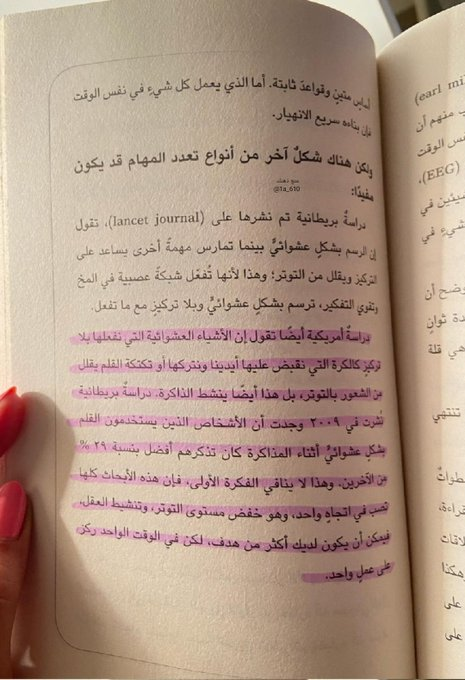 أساسٍ متينٍ وقواعدَ ثابتة. أما الذي يعمل كل شيءٍ في نفس الوقت
فإن بناءه سريع الانهيار.
ولكن هناك شكلٌ آخر من أنواع تعدد المهام قد يكون
مفيدًا:
منع ذهنك
@1a_610
دراسةٌ بريطانية تم نشرها على (lancet journal)، تقول
إن الرسم بشكلٍ عشوائيٍّ بينما تمارس مهمةً أخرى يساعد على
التركيز ويقلل من التوتر؛ وهذا لأنها تُفعّل شبكةً عصبية في المخ
وتقوي التفكير، ترسم بشكلٍ عشوائيٍّ وبلا تركيزٍ مع ما تفعل.
دراسةٌ أمريكية أيضًا تقول إن الأشياء العشوائية التي نفعلها بلا
تركيزٍ كالكرة التي نقبض عليها أيدينا ونتركها أو تكتكة القلم يقلل
من الشعور بالتوتر، بل هذا أيضًا ينشط الذاكرة. دراسةٌ بريطانية
نُشرت في ٢٠٠٩ وجدت أن الأشخاص الذين يستخدمون القلم
بشكلٍ عشوائيٍّ أثناء المذاكرة كان تذكرهم أفضل بنسبة ٢٩ %
من الآخرين. وهذا لا ينافي الفكرة الأولى، فإن هذه الأبحاث كلها
تصب في اتجاهٍ واحد، وهو خفض مستوى التوتر، وتنشيط العقل،
فيمكن أن يكون لديك أكثر من هدف، لكن في الوقت الواحد ركز
على عملٍ واحد.
(earl mi
ب منهم أن
فس الوقت
(EEG)،
شيئين في
شيءٍ في
وضح أن
دة ثوانٍ
هي قلة
تنتهي
طواتٌ
قراءة،
لاقات
هكذا
على
على